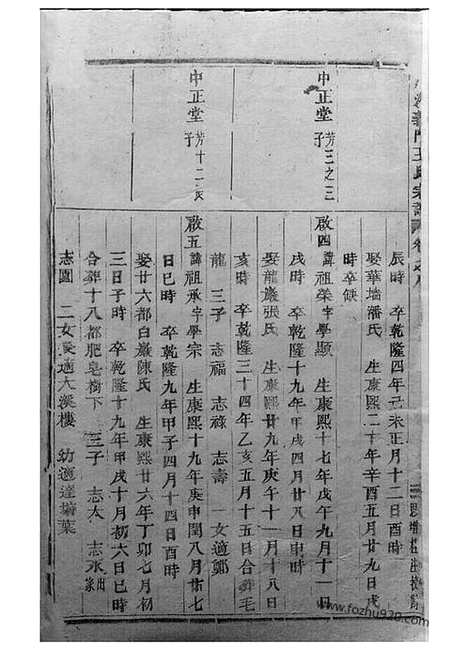 義門王氏宗譜
辰時 卒乾隆四年己未正月十二日酉時
娶華墻潘氏 生康熙二十年辛酉五月廿九日戌
時卒缺
中正堂 芳三之三子
啟四 諱祖榮字學顯 生康熙十七年戊午九月十一日
戌時 卒乾隆十九年甲戌四月廿八日申時
娶龍巖張氏 生康熙廿九年庚午十一月十八日
亥時 卒乾隆三十四年乙亥五月十五日合葬毛
龍 三子 志福 志祿 志壽 一女適鄭
中正堂 芳十二長子
啟五 諱祖承字學宗 生康熙十九年庚申閏八月廿七
日巳時 卒乾隆九年甲子四月十四日酉時
娶廿六都白巖陳氏 生康熙廿六年丁卯七月初
三日子時 卒乾隆十九年甲戌十月初六日巳時
合葬十八都肥皂樹下 三子 志太 志永出家
志圓 二女長適大溪樓 幼適達塘葉
www.fozhu920.com